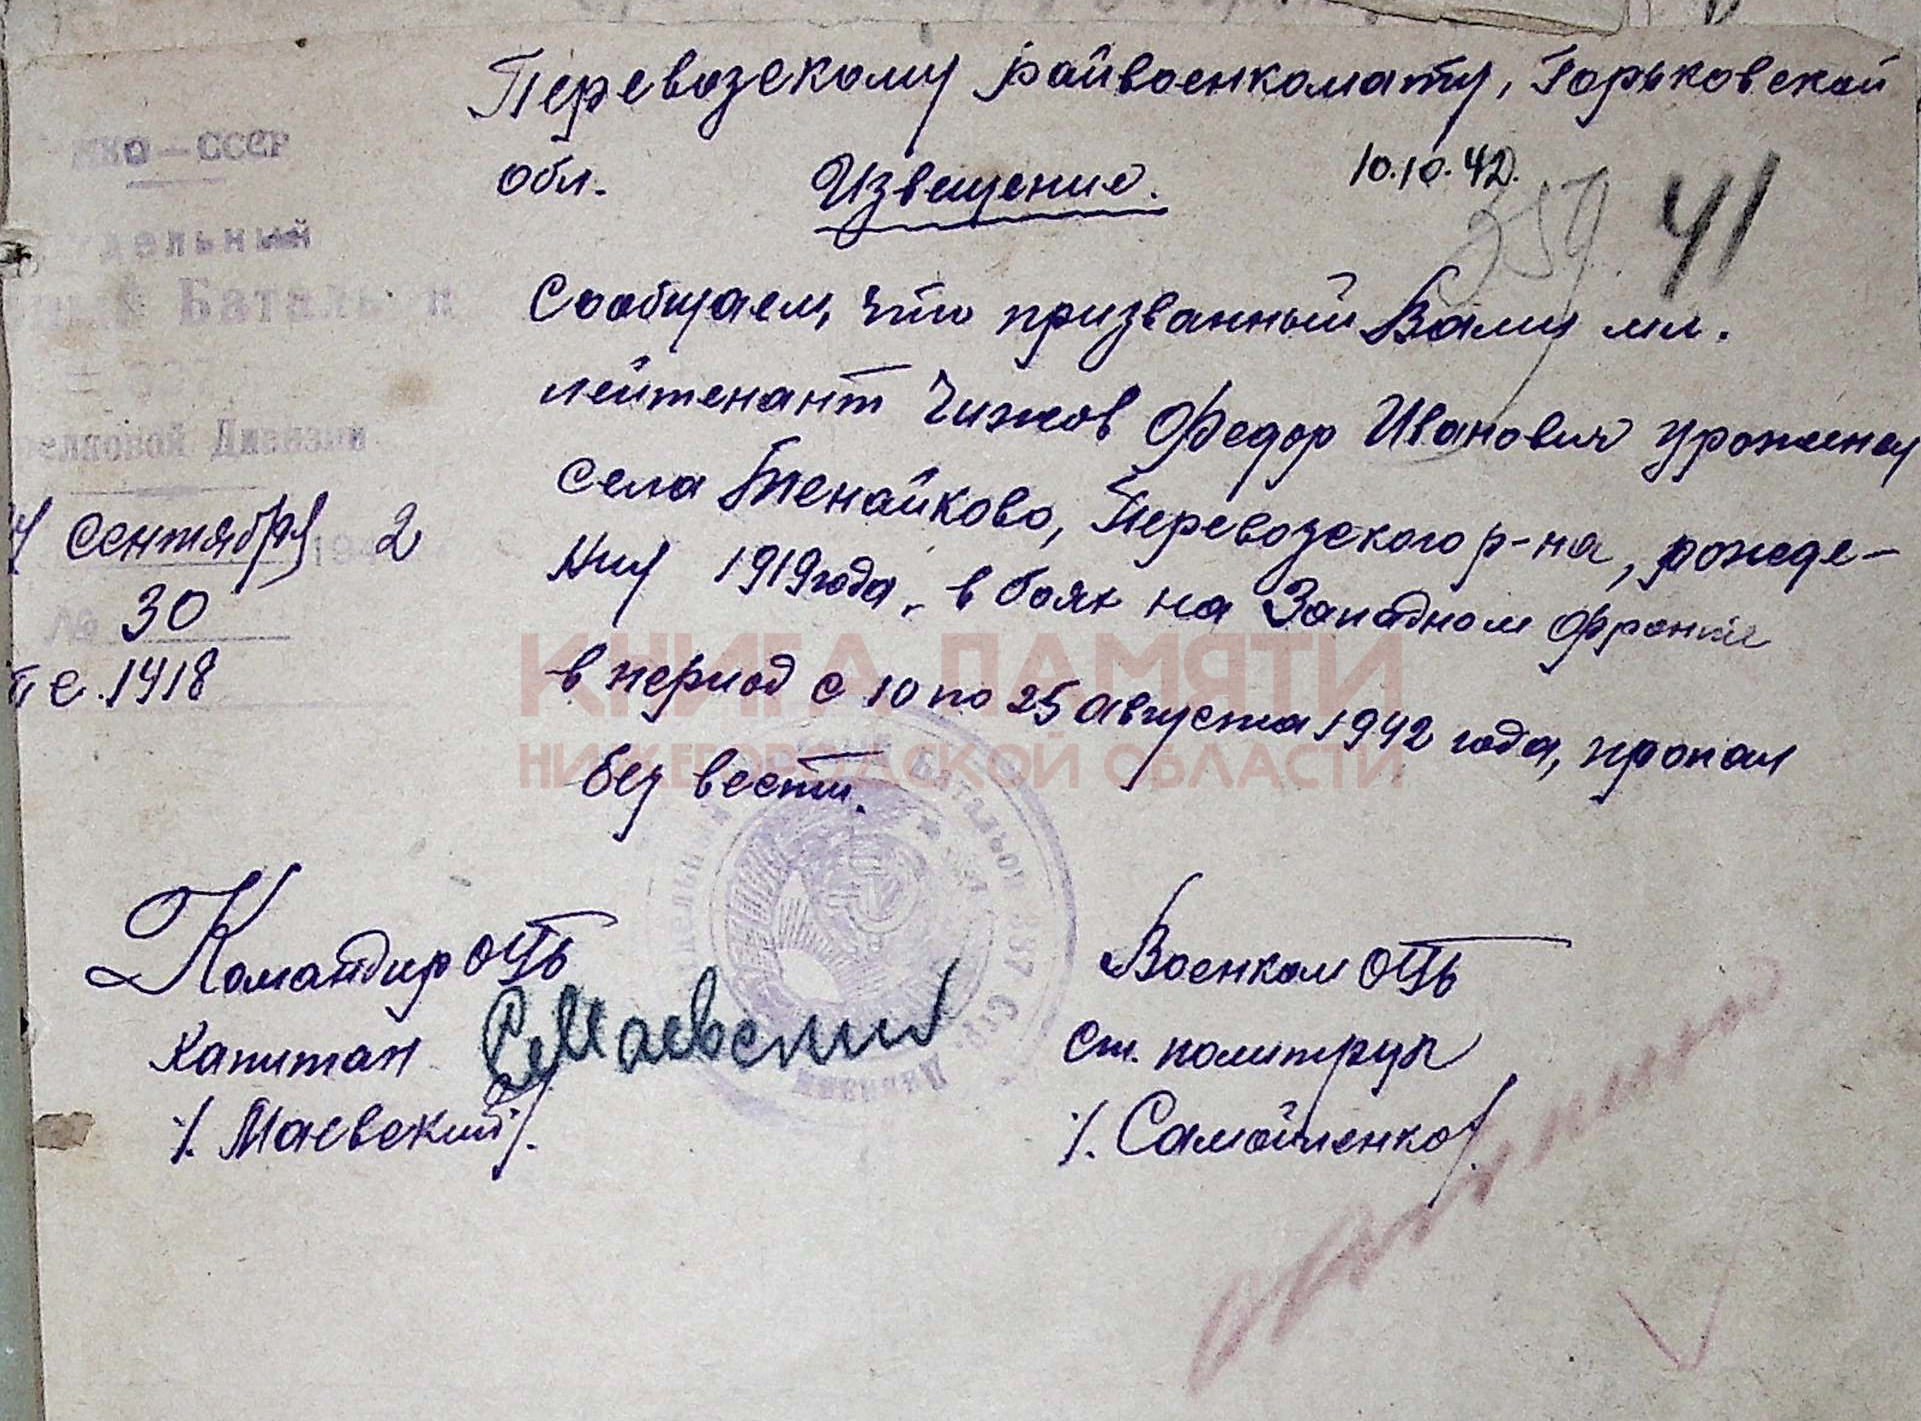 Перевозскому райвоенкомату, Горьковской
обл. Извещение. 10.10.42.
359 41
НКО — СССР
дельный
Батальон
релковой Дивизии
сентября 194 2
№ 30
п с. 1418
Сообщаем, что призванный Вами мл.
лейтенант Чижов Федор Иванович уроженец
села Тенайково, Перевозского р-на, рожде-
ния 1919 года, в боях на Западном фронте
в период с 10 по 25 августа 1942 года, пропал
без вести.
КНИГА ПАМЯТИ
НИЖЕГОРОДСКОЙ ОБЛАСТИ
Батальон 387 Стр. Дивизии
Командир ОУБ
капитан Маевский
/. Маевский/.
Военком ОУБ
ст. политрук
/. Самойленко/.